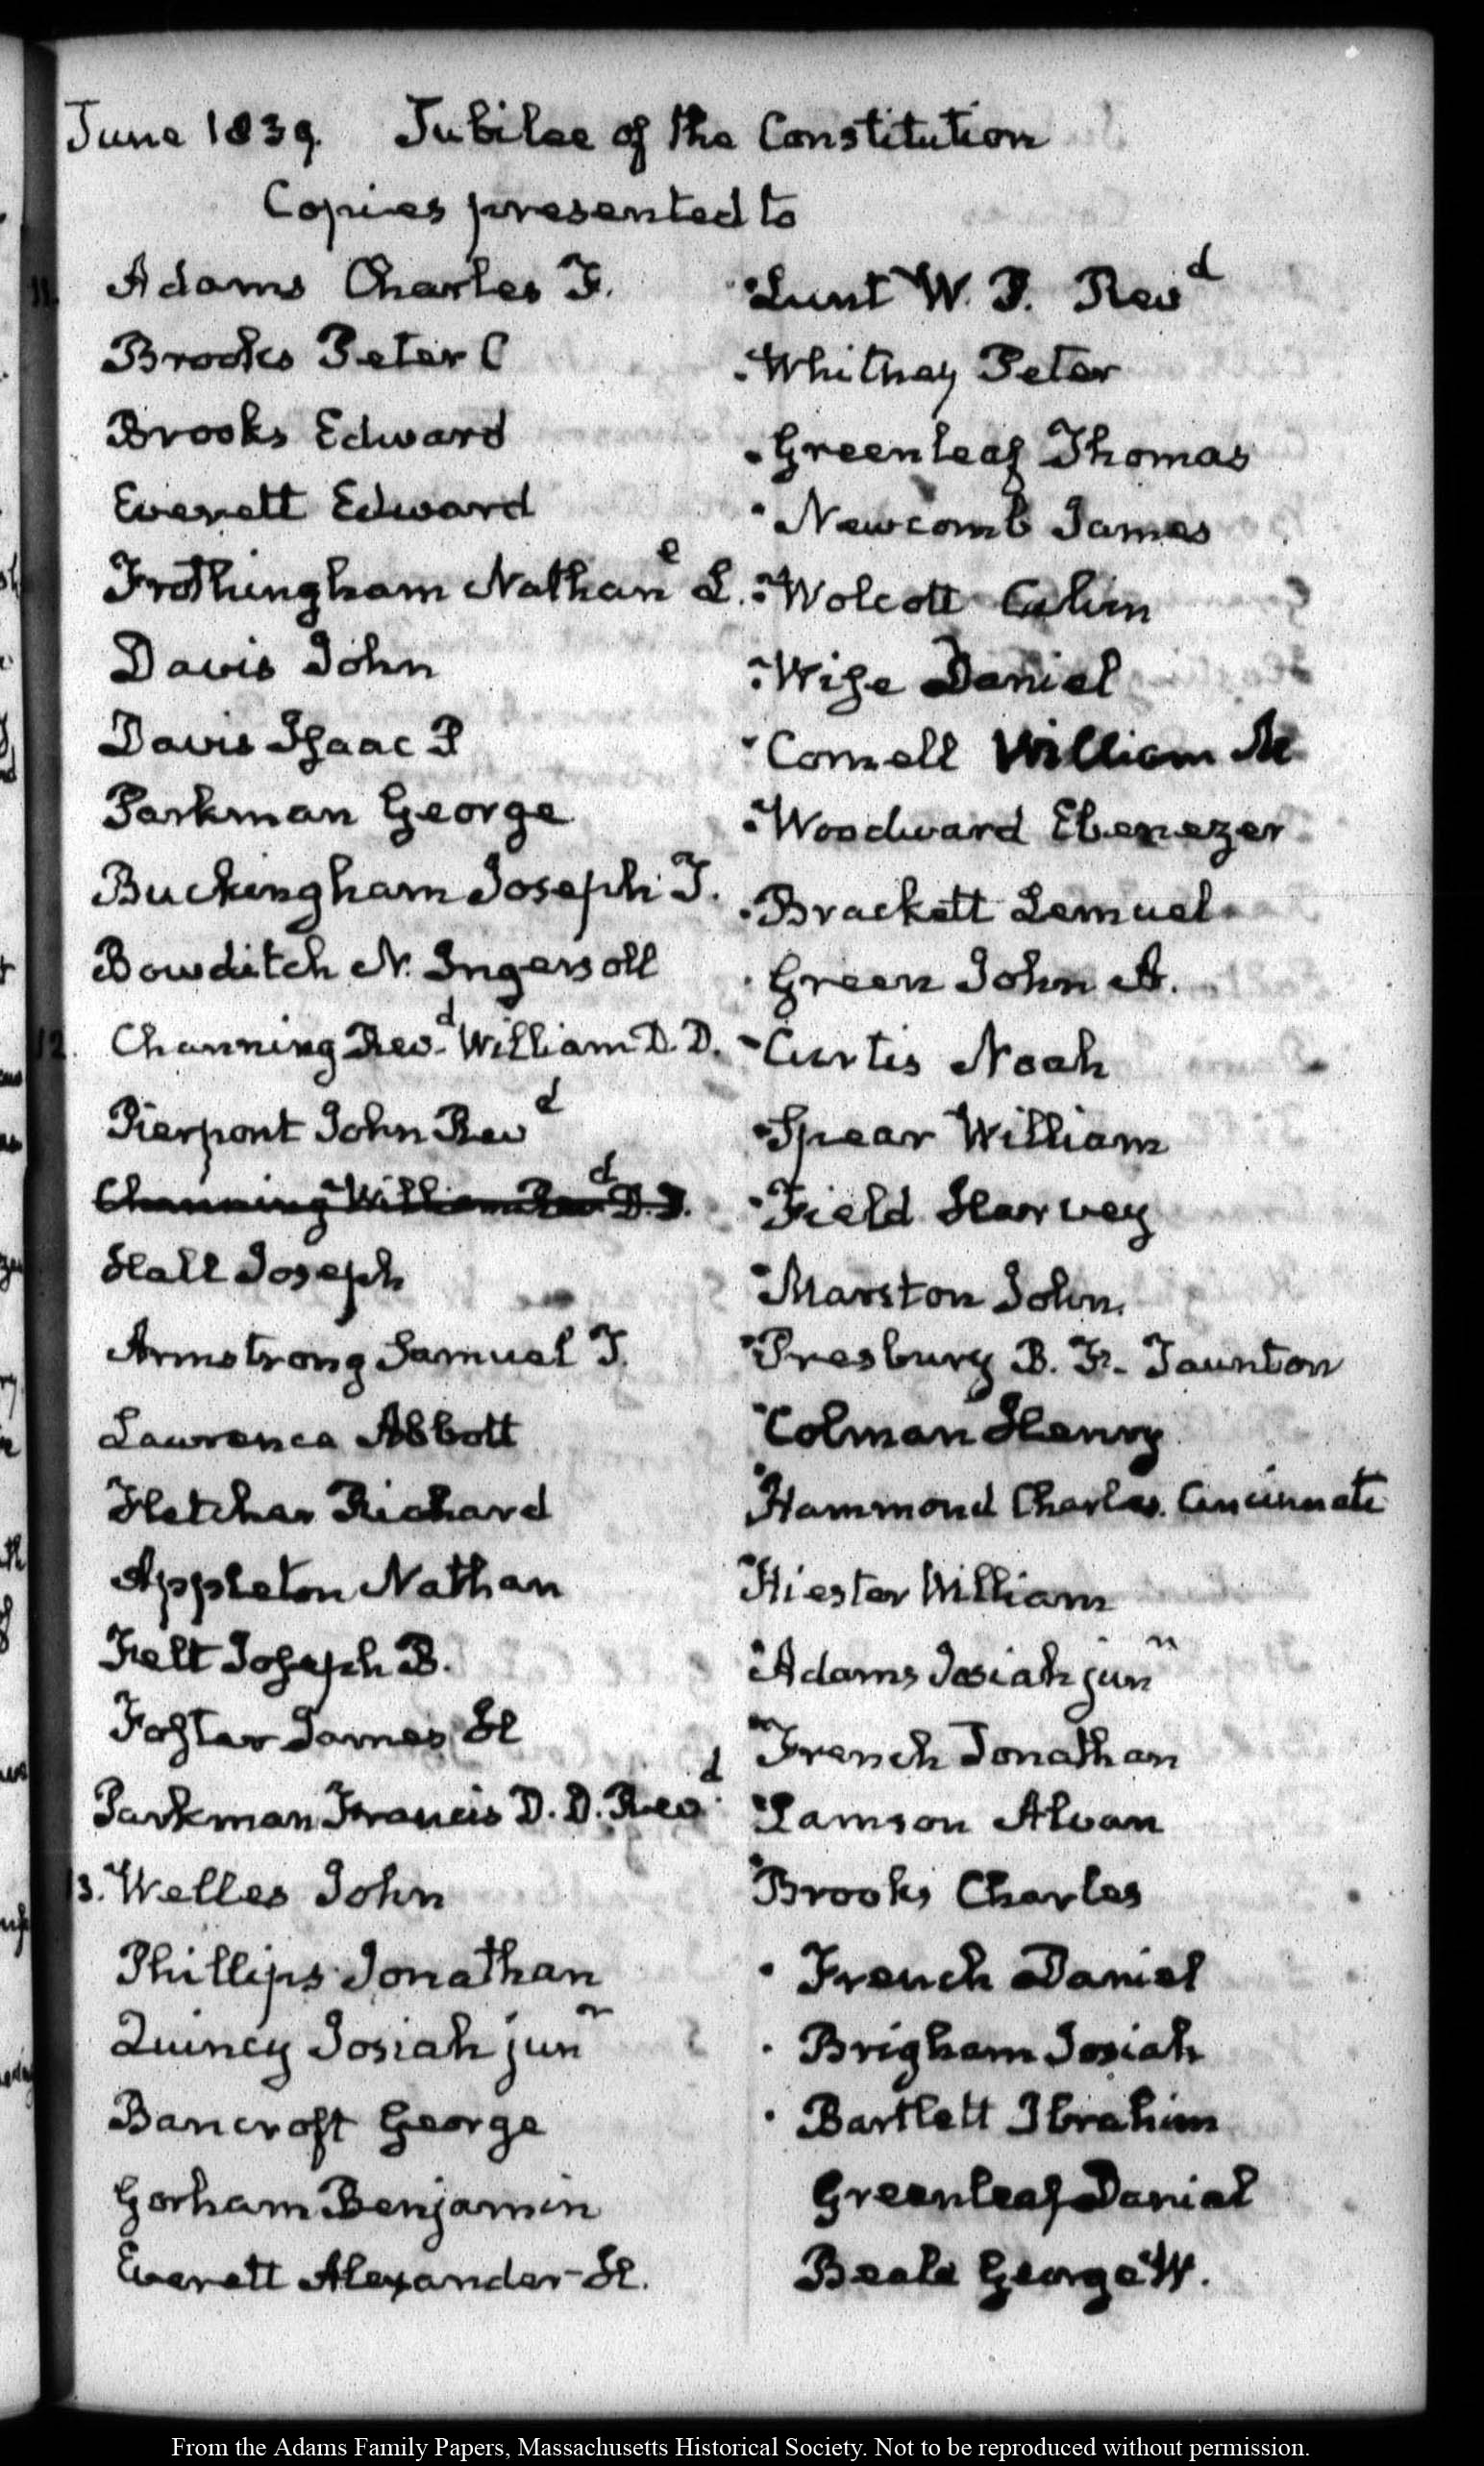 June 1839. Jubilee of the Constitution
Copies presented to
11. Adams Charles F.
Brooks Peter C
Brooks Edward
Everett Edward
Frothingham Nathan^e L.
Davis John
Davis Isaac P
Parkman George
Buckingham Joseph T.
Bowditch N. Ingersoll
12. Channing Rev^d William D. D.
Pierpont John Rev^d
Channing William Rev^d D. D.
Hall Joseph
Armstrong Samuel T.
Lawrence Abbott
Fletcher Richard
Appleton Nathan
Felt Joseph B.
Foster James H
Parkman Francis D. D. Rev^d
13. Welles John
Phillips Jonathan
Quincy Josiah jun^r
Bancroft George
Gorham Benjamin
Everett Alexander H.
Lunt W. P. Rev^d
Whitney Peter
Greenleaf Thomas
Newcomb James
Wolcott Calvin
Wise Daniel
Cornell William M
Woodward Ebenezer
Brackett Lemuel
Green John A.
Curtis Noah
Spear William
Field Harvey
Marston John.
Presbury B. F. Taunton
Colman Henry
Hammond Charles. Cincinnati
Hiester William
Adams Josiah jun^r
French Jonathan
Lamson Alvan
Brooks Charles
French Daniel
Brigham Josiah
Bartlett Ibrahim
Greenleaf Daniel
Beale George W.
From the Adams Family Papers, Massachusetts Historical Society. Not to be reproduced without permission.